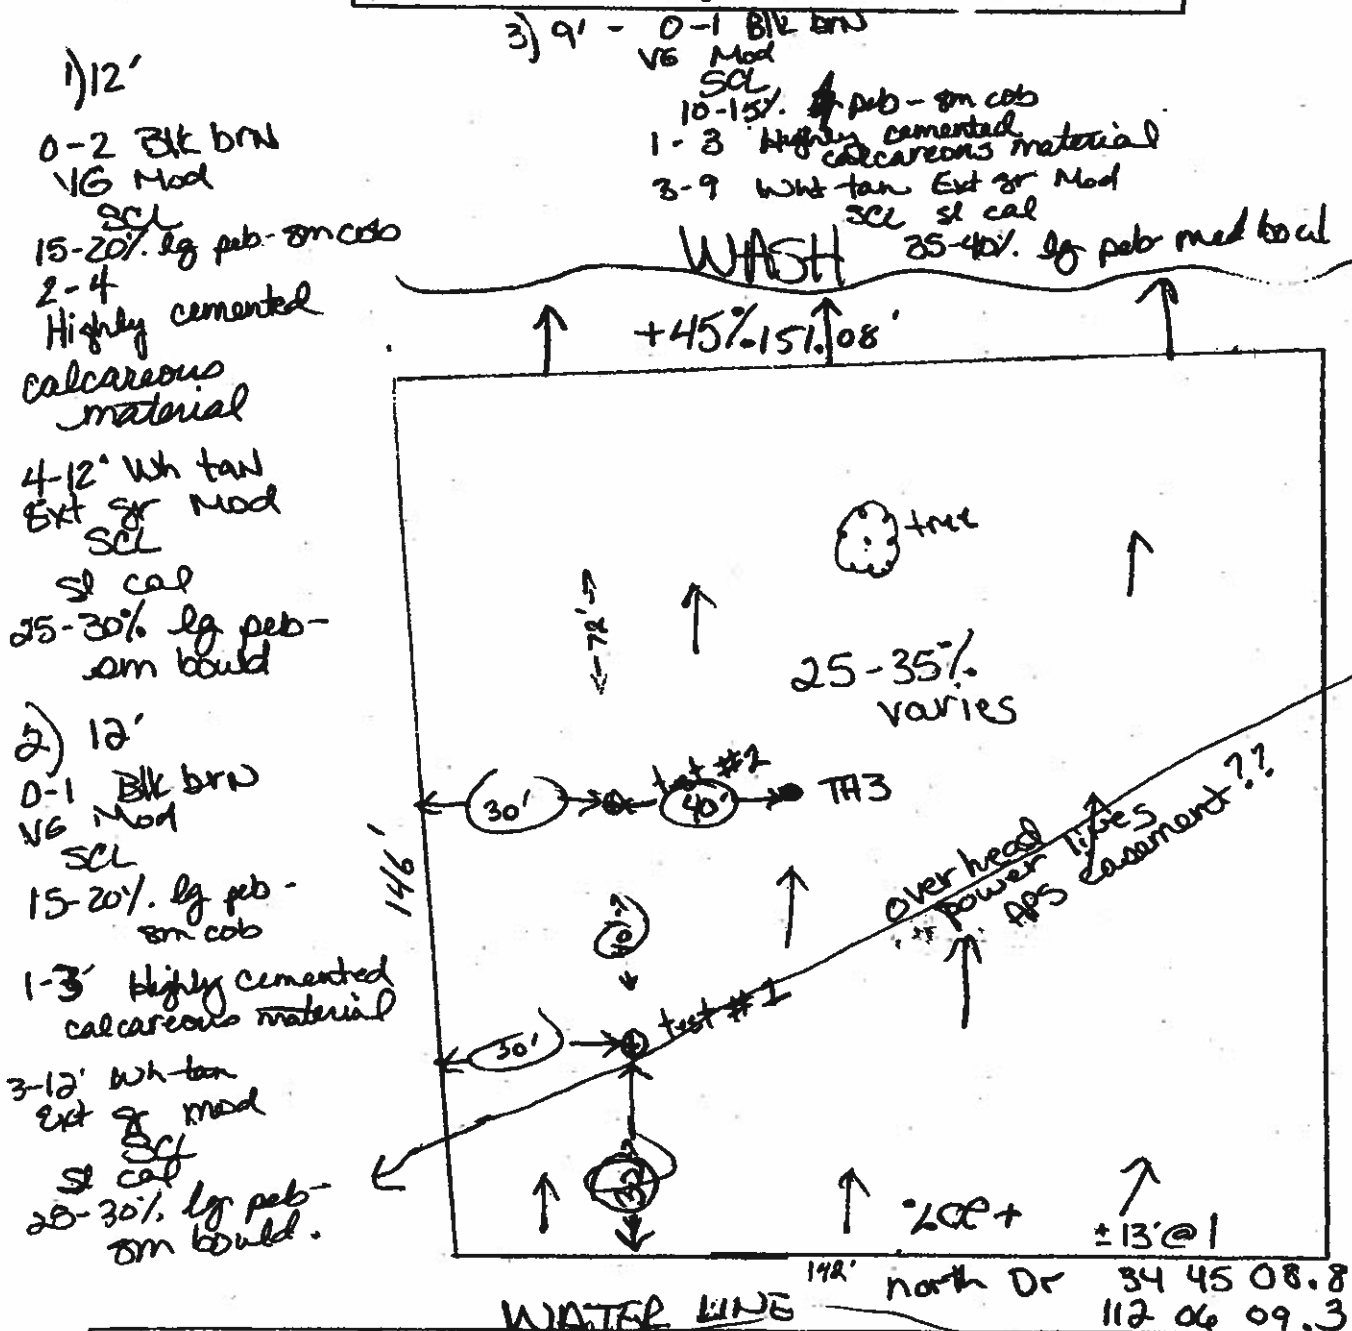 3) 9' - 0-1 Blk brn
VG Mod
SCL
10-15% peb-sm cob
1-3 Highly cemented
calcareous material
3-9 Wht tan Ext gr Mod
SCL sl cal
35-40% lg peb-med boul
1) 12'
0-2 Blk brn
VG Mod
SCL
15-20% lg peb-sm cob
2-4
Highly cemented
calcareous
material
4-12' Wh tan
Ext gr Mod
SCL
sl cal
25-30% lg peb-
sm bould
2) 12'
0-1 Blk brn
VG Mod
SCL
15-20% lg peb-
sm cob
1-3' Highly cemented
calcareous material
3-12' Wh-tan
Ext gr mod
SCL
sl cal
25-30% lg peb-
sm bould.
WASH
+45% 151.08'
tree
72'
25-35%
varies
test #2
30'
40'
TH3
146'
overhead
power lines
APS easement??
40'
test #1
30'
32'
+20%
±13'@1
142'
north Dr
34 45 08.8
112 06 09.3
WATER LINE